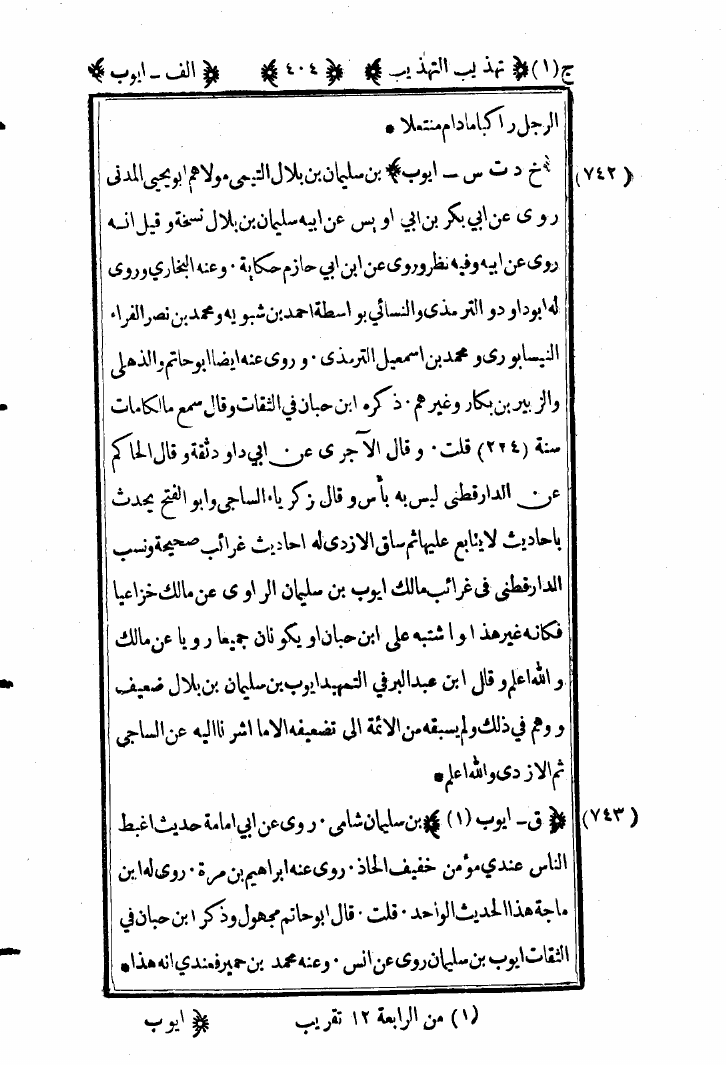 ج(١) ﴿ تهذيب التهذيب ﴾ ﴿ ٤٠٤ ﴾ ﴿ الف - ايوب ﴾
الرجل راكبا مادام منتعلا •
(٧٤٢) ﴿ خ د ت س - ايوب ﴾ بن سليمان بن بلال التيمى مولاهم ابو يحيى المدنى
روى عن ابي بكر بن ابي اويس عن ابيه سليمان بن بلال نسخة و قيل انه
روى عن ابيه وفيه نظر وروى عن ابن ابي حازم حكاية · وعنه البخاري وروى
له ابوداود و الترمذى والنسائي بواسطة احمد بن شبويه و محمد بن نصر الفراء
النيسابورى و محمد بن اسمعيل الترمذى · و روى عنه ايضا ابو حاتم والذهلى
والزبير بن بكار وغيرهم · ذكره ابن حبان في الثقات وقال سمع مالكا مات
سنة (٢٢٤) قلت · وقال الآجرى عن ابي داود ثقة و قال الحاكم
عن الدارقطنى ليس به بأس و قال زكرياء الساجى وابو الفتح يحدث
باحاديث لا يتابع عليها ثم ساق الازدى له احاديث غرائب صحيحة و نسب
الدارقطنى فى غرائب مالك ايوب بن سليمان الراوى عن مالك خزاعيا
فكانه غير هذا او اشتبه على ابن حبان او يكونان جميعا رويا عن مالك
و الله اعلم و قال ابن عبدالبر في التمهيد ايوب بن سليمان بن بلال ضعيف
و وهم في ذلك و لم يسبقه من الائمة الى تضعيفه الا ما اشرنا اليه عن الساجى
ثم الازدى و الله اعلم •
(٧٤٣) ﴿ ق - ايوب (١) ﴾ بن سليمان شامى · روى عن ابي امامة حديث اغبط
الناس عندي مؤمن خفيف الحاذ · روى عنه ابراهيم بن مرة · روى له ابن
ماجة هذا الحديث الواحد · قلت · قال ابو حاتم مجهول وذكر ابن حبان في
الثقات ايوب بن سليمان روى عن انس · وعنه محمد بن حمير فعندي انه هذا •
(١) من الرابعة ١٢ تقريب ﴿ ايوب